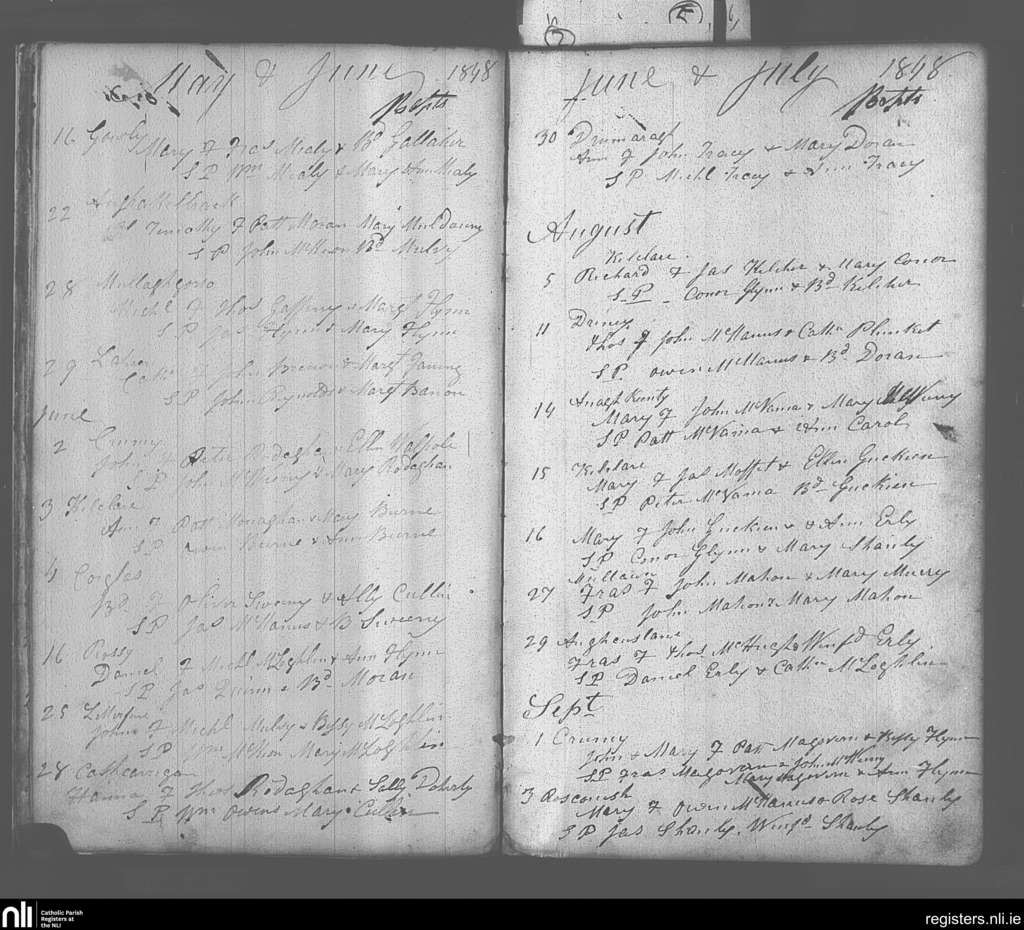 May & June 1848
Bapts
16 Gowly
Mary of Fras Mealy & Bd Gallaher
S P Wm Mealy & Mary Ann Mealy
22 Aughakilbrack
Timothy of Patt Moran Mary Muldauny
S P John McKeon Bd Mulvy
28 Mullaghgarve
Michl of Thos Gaffney & Margt Flynn
S P Jas Flynn & Mary Flynn
29
John Brenan & Margt
S P John Reynolds & Margt Banon
June
2 Crumy
John Peter Rodagha Ellen Walpole
S P John McKeeny & Mary Rodaghan
3 Kilclare
Ann of Patt Monaghan & Mary Burne
S P Owen Burne & Ann Burne
4 Corglas
Bd of Oliver Sweeny & Ally Cullin
S P Jas McManus & B Sweeny
16 Rossy
Daniel of Michl McLoghlin & Ann Flynn
S P Jas Quinn & Bd Moran
25 Letterfine
John of Michl Mulvy & Bessy McLoghlin
S P Wm McKeon Mary McLoghlin
28
Hanna of Thos Rodaghan & Sally Doherty
S P Wm Owens Mary Cullen
June & July 1848
Bapts
30 Drumaragh
Ann of John Tracey & Mary Doran
S P Michl Tracy & Ann Tracy
August
Kilclare
5 Richard of Jas Kelcher & Mary Conor
S P Conor Glynn & Bd Kelcher
11 Driney
Thos of John McManus & Cathn Plunket
S P Owen McManus & Bd Doran
Anagh Kenty
14 Mary of John McNama & Mary McWeeny
S P Patt McNama & Ann Carol
15 Kilclare
Mary of Jas Moffet & Ellen Guckien
S P Peter McNama Bd Guckien
16 Mary of John Guckien & Ann Erly
S P Conor Glynn & Mary Shanly
Mullaun
27 Fras of John Mahon & Mary Murry
S P John Mahon & Mary Mahon
29 Aughenslane
Fras of Thos McHugh & Winfd Erly
S P Daniel Erly & Cathn McLoghlin
Sept
1 Crumy
John & Mary of Patt Magovern & Bessy Flynn
S P Fras Magovern & John McKeeny
Mary Magovern & Ann Flynn
3 Roscunish
Mary of Owen McManus & Rose Shanly
S P Jas Shanly. Winfd Shanly
nli
Catholic Parish
Registers at
the NLI
registers.nli.ie